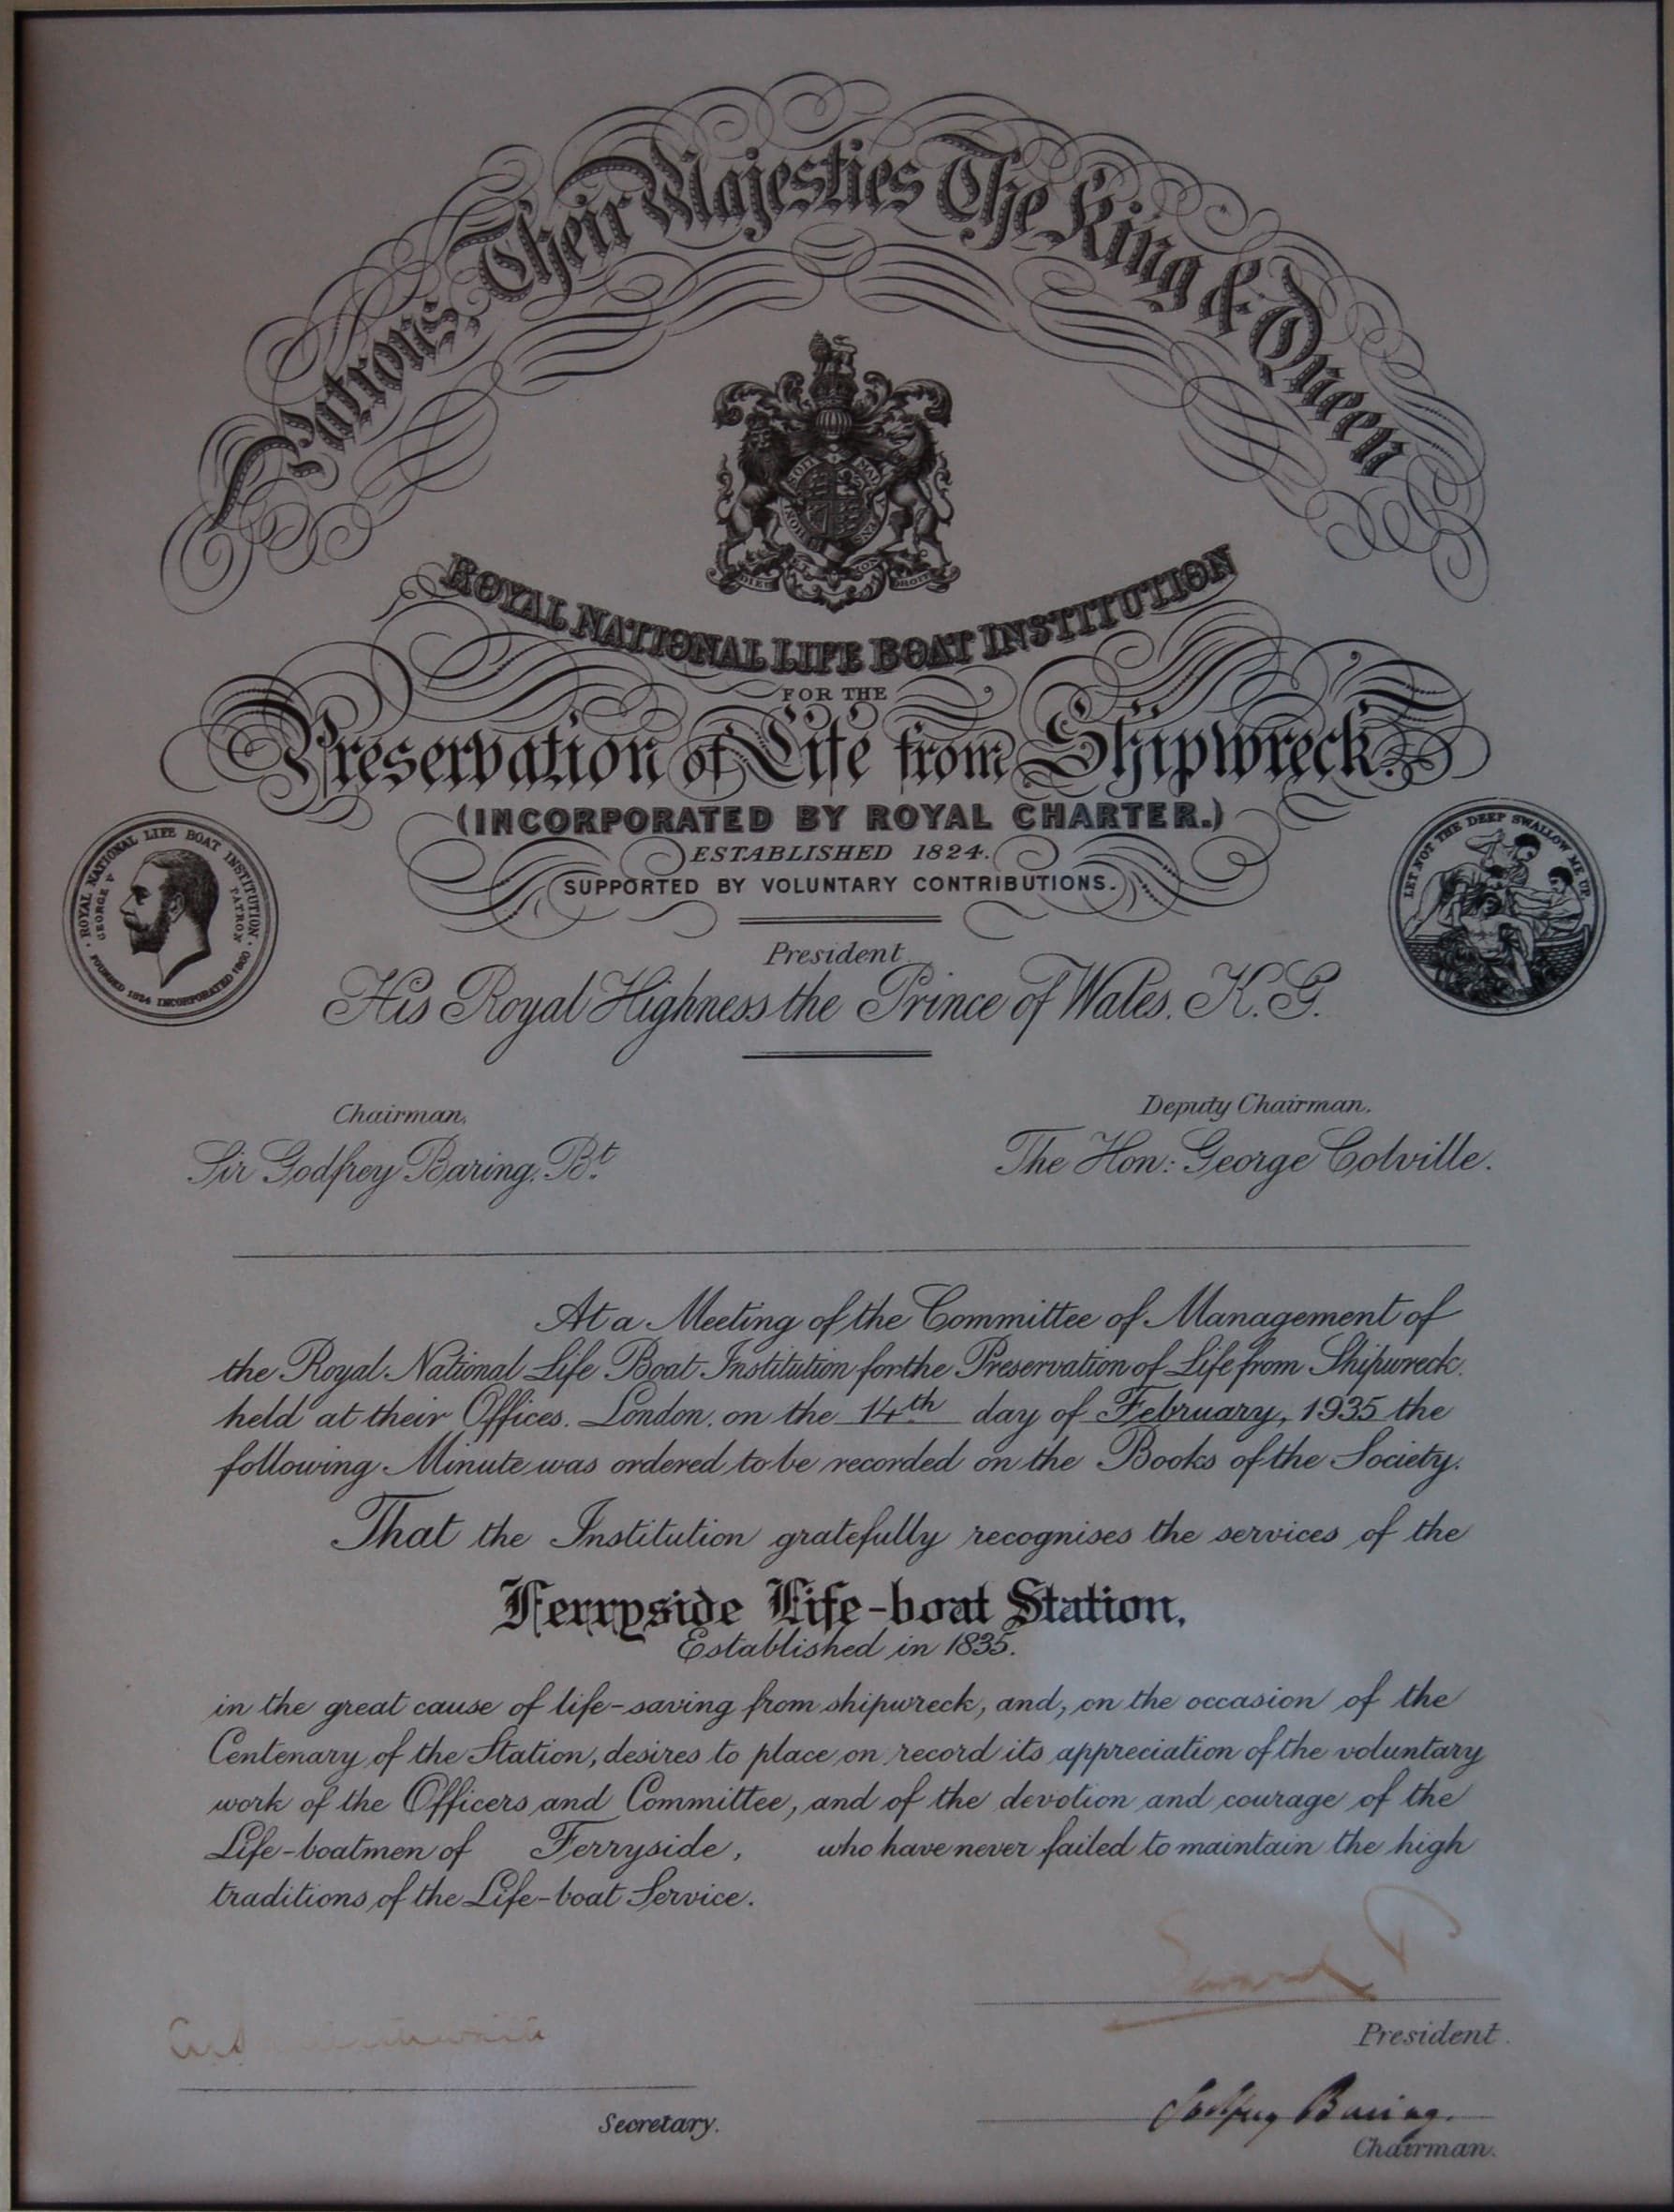 Patrons, Their Majesties The King & Queen
SOIT MAL
HONI
DIEU ET MON DROIT
ROYAL NATIONAL LIFE BOAT INSTITUTION
FOR THE
Preservation of Life from Shipwreck.
(INCORPORATED BY ROYAL CHARTER.)
ESTABLISHED 1824.
SUPPORTED BY VOLUNTARY CONTRIBUTIONS.
· ROYAL NATIONAL LIFE BOAT INSTITUTION ·
GEORGE V
PATRON
FOUNDED 1824 INCORPORATED 1860
LET NOT THE DEEP SWALLOW ME UP
President
His Royal Highness the Prince of Wales. K.G.
Chairman.
Sir Godfrey Baring. Bt.
Deputy Chairman.
The Hon: George Colville.
At a Meeting of the Committee of Management of
the Royal National Life Boat Institution for the Preservation of Life from Shipwreck.
held at their Offices. London. on the 14th day of February, 1935 the
following Minute was ordered to be recorded on the Books of the Society.
That the Institution gratefully recognises the services of the
Ferryside Life-boat Station,
Established in 1835.
in the great cause of life-saving from shipwreck, and, on the occasion of the
Centenary of the Station, desires to place on record its appreciation of the voluntary
work of the Officers and Committee, and of the devotion and courage of the
Life-boatmen of Ferryside, who have never failed to maintain the high
traditions of the Life-boat Service.
Edward P
President.
Secretary.
Godfrey Baring.
Chairman.